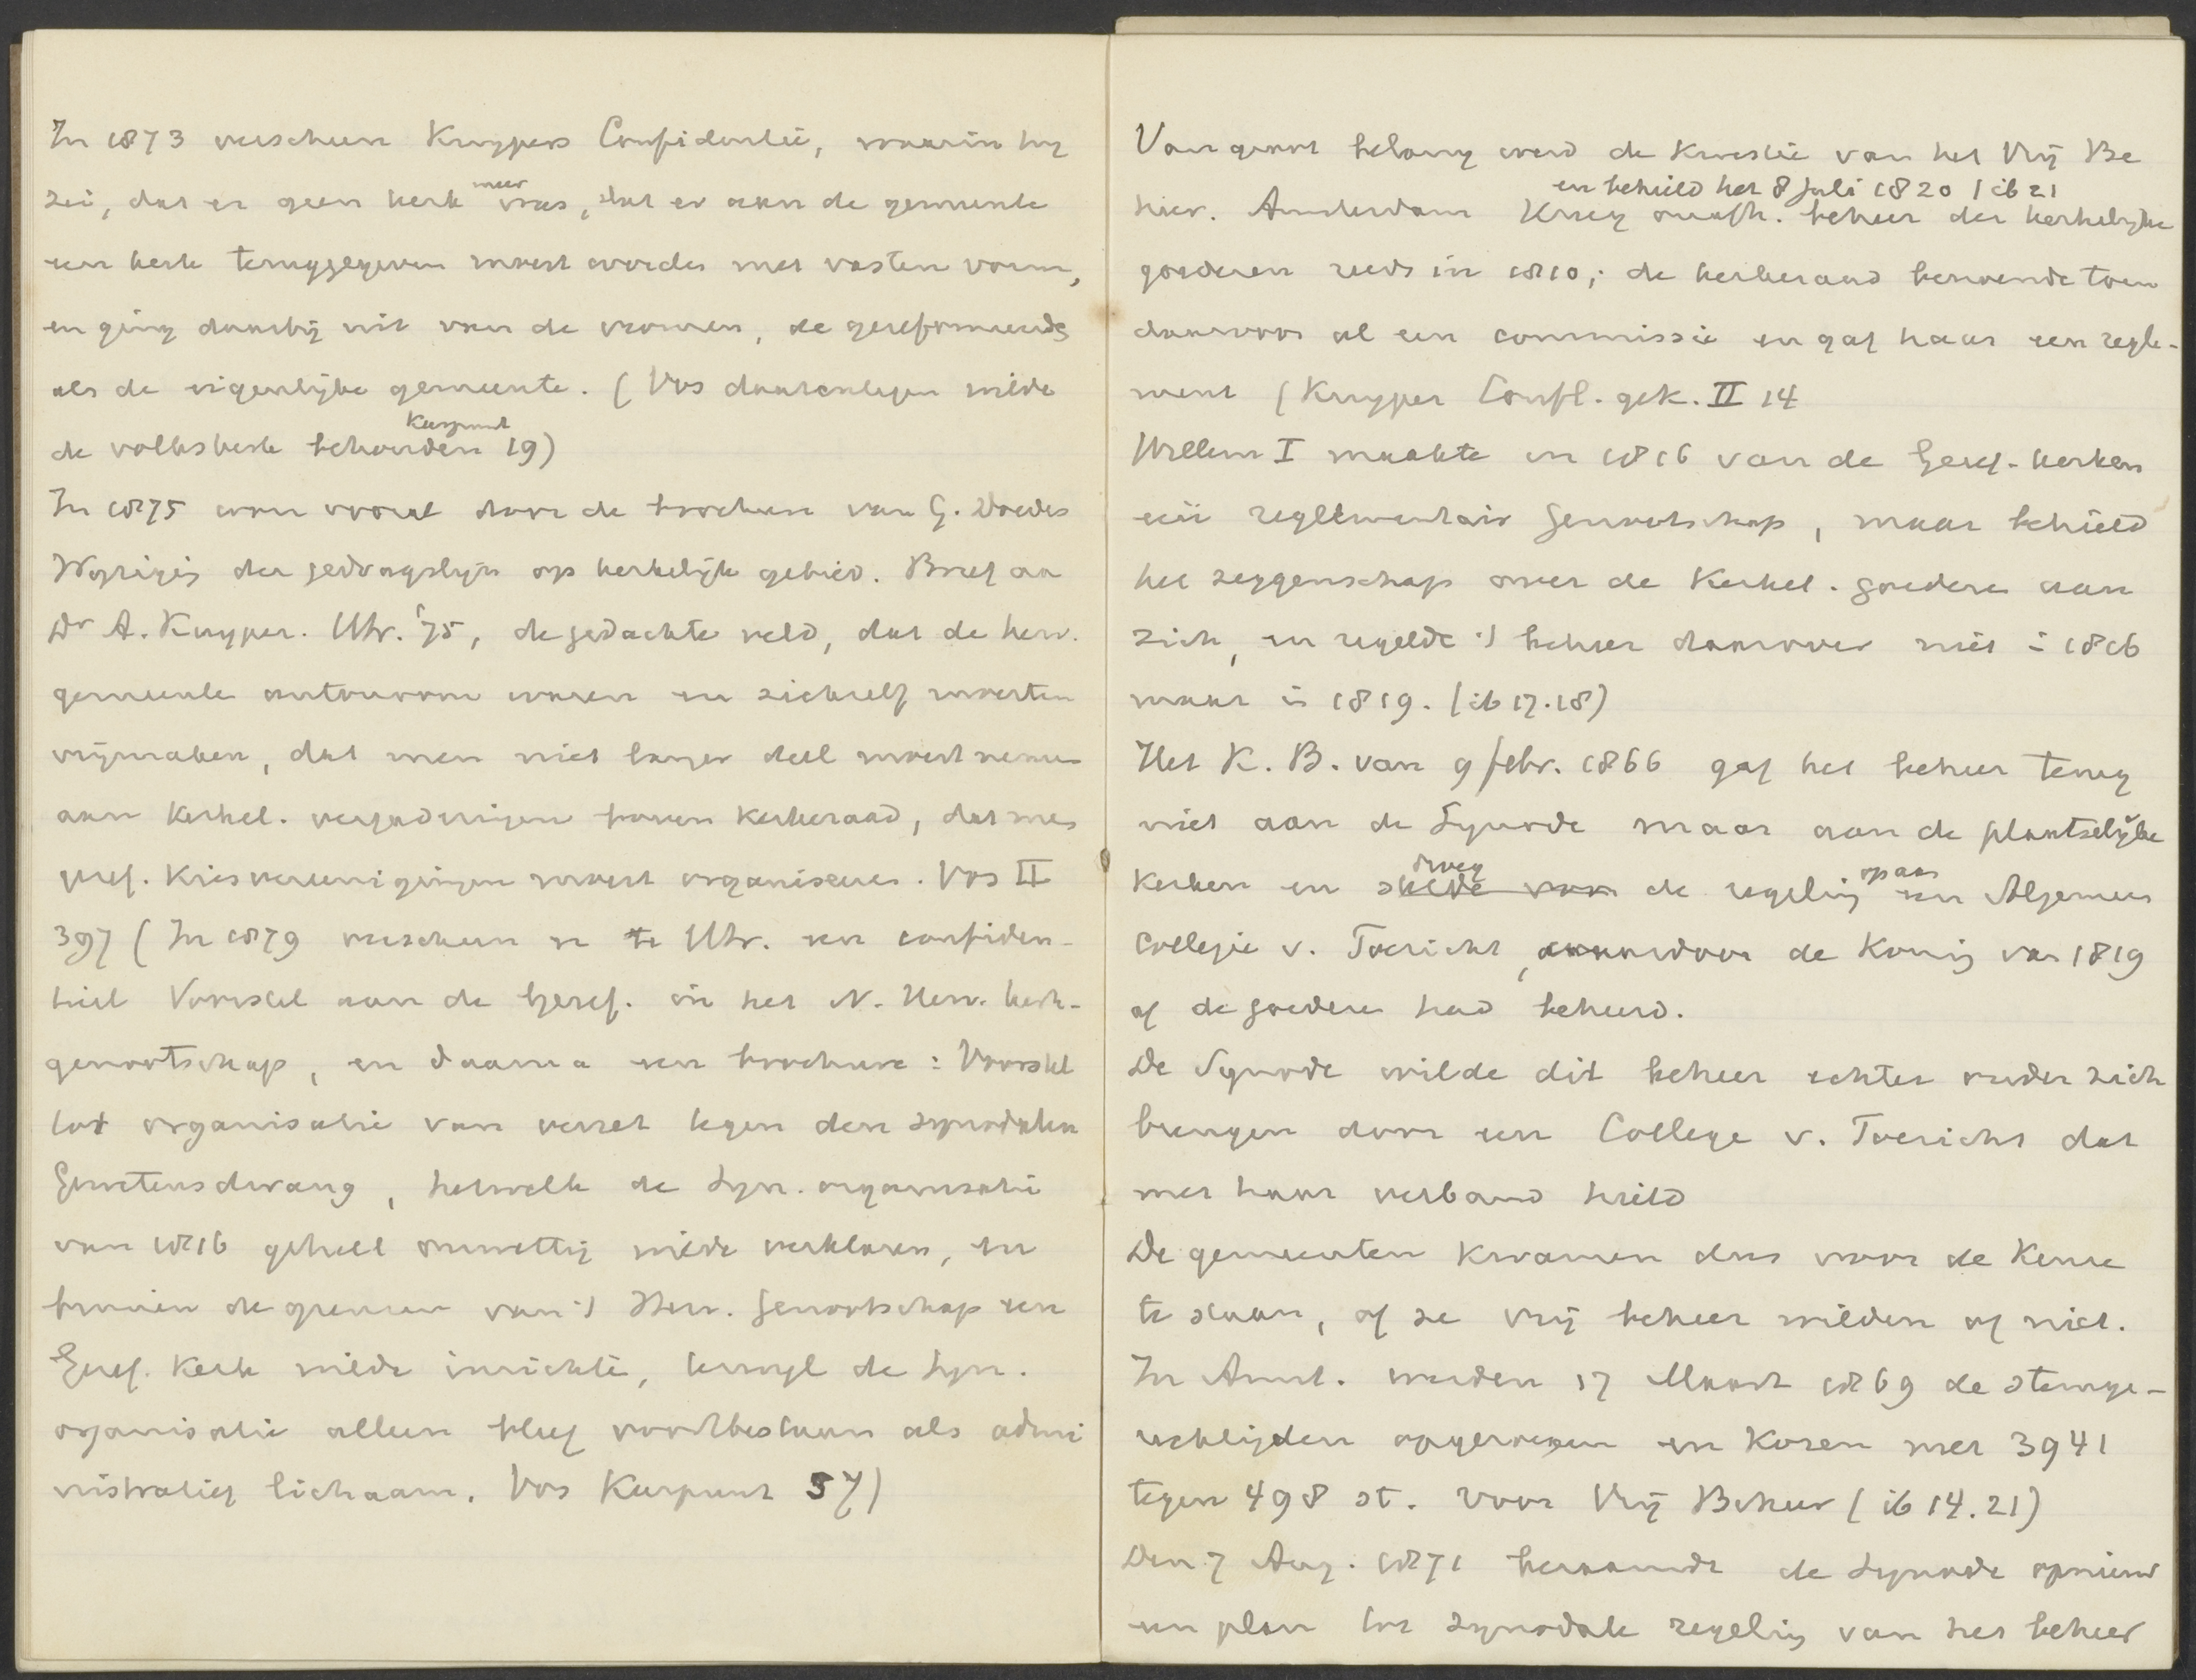 In 1873 verscheen Kuypers Confidentie, waarin hij
zei, dat er geen kerk meer was, dat er aan de gemeente
een kerk teruggegeven moest worden met vasten vorm,
en ging daarbij uit van de vromen, de gereformeerde
als de eigenlijke gemeente. (Vos daarentegen wilde
de volkskerk behouden Keerpunt 19)
In 1875 won vooral door de brochure van G. Doedes
Wijziging der gedragslijn op kerkelijk gebied. Brief aan
Dr A. Kuyper. Utr. '75, de gedachte veld, dat de herv.
gemeente autonoom waren en zichzelf moesten
vrijmaken, dat men niet langer deel moest nemen
aan Kerkel. vergaderingen boven Kerkeraad, dat men
geref. Kiesvereenigingen moest organiseeren. Vos II
397 (In 1879 verscheen er te Utr. een confiden-
tieel Voorstel aan de Geref. in het N. Herv. kerk-
genootschap, en daarna een brochure: Voorstel
tot organisatie van verzet tegen den synodalen
Gewetensdwang, hetwelk de Syn. organisatie
van 1816 geheel onwettig wilde verklaren, en
binnen de grenzen van 't Herv. Genootschap een
Geref. Kerk wilde inrichten, terwijl de Syn.
organisatie alleen bleef voortbestaan als admi
nistratief lichaam. Vos Keerpunt 57)
Van groot belang werd de kwestie van het Vrij Be
en behield het 8 Juli 1820 (ib 21
heer. Amsterdam kreeg onafh. beheer der kerkelijke
goederen reeds in 1810; de kerkeraad benoemde toen
daarvoor al een commissie en gaf haar een regle-
ment (Kuyper Confl. gek. II 14
Willem I maakte in 1816 van de Geref. kerken
één reglementair Genootschap, maar behield
het zeggenschap over de Kerkel. goederen aan
zich, en regelde 't beheer daarover niet in 1816
maar in 1819. (ib 17.18)
Het K. B. van 9 febr. 1866 gaf het beheer terug
niet aan de Synode maar aan de plaatselijke
Kerken en stelde voor droeg de regeling op aan een Algemeen
Collegie v. Toezicht, waardoor de Koning van 1819
af de goederen had beheerd.
De Synode wilde dit beheer echter onder zich
brengen door een College v. Toezicht dat
met haar verband hield
De gemeenten kwamen dus voor de Keuze
te staan, of ze vrij beheer wilden of niet.
In Amst. werden 17 Maart 1869 de stemge-
rechtigden opgeroepen en kozen met 3941
tegen 498 st. voor Vrij Beheer (ib 14.21)
Den 7 Aug. 1871 beraamde de Synode opnieuw
een plan tot synodale regeling van het beheer